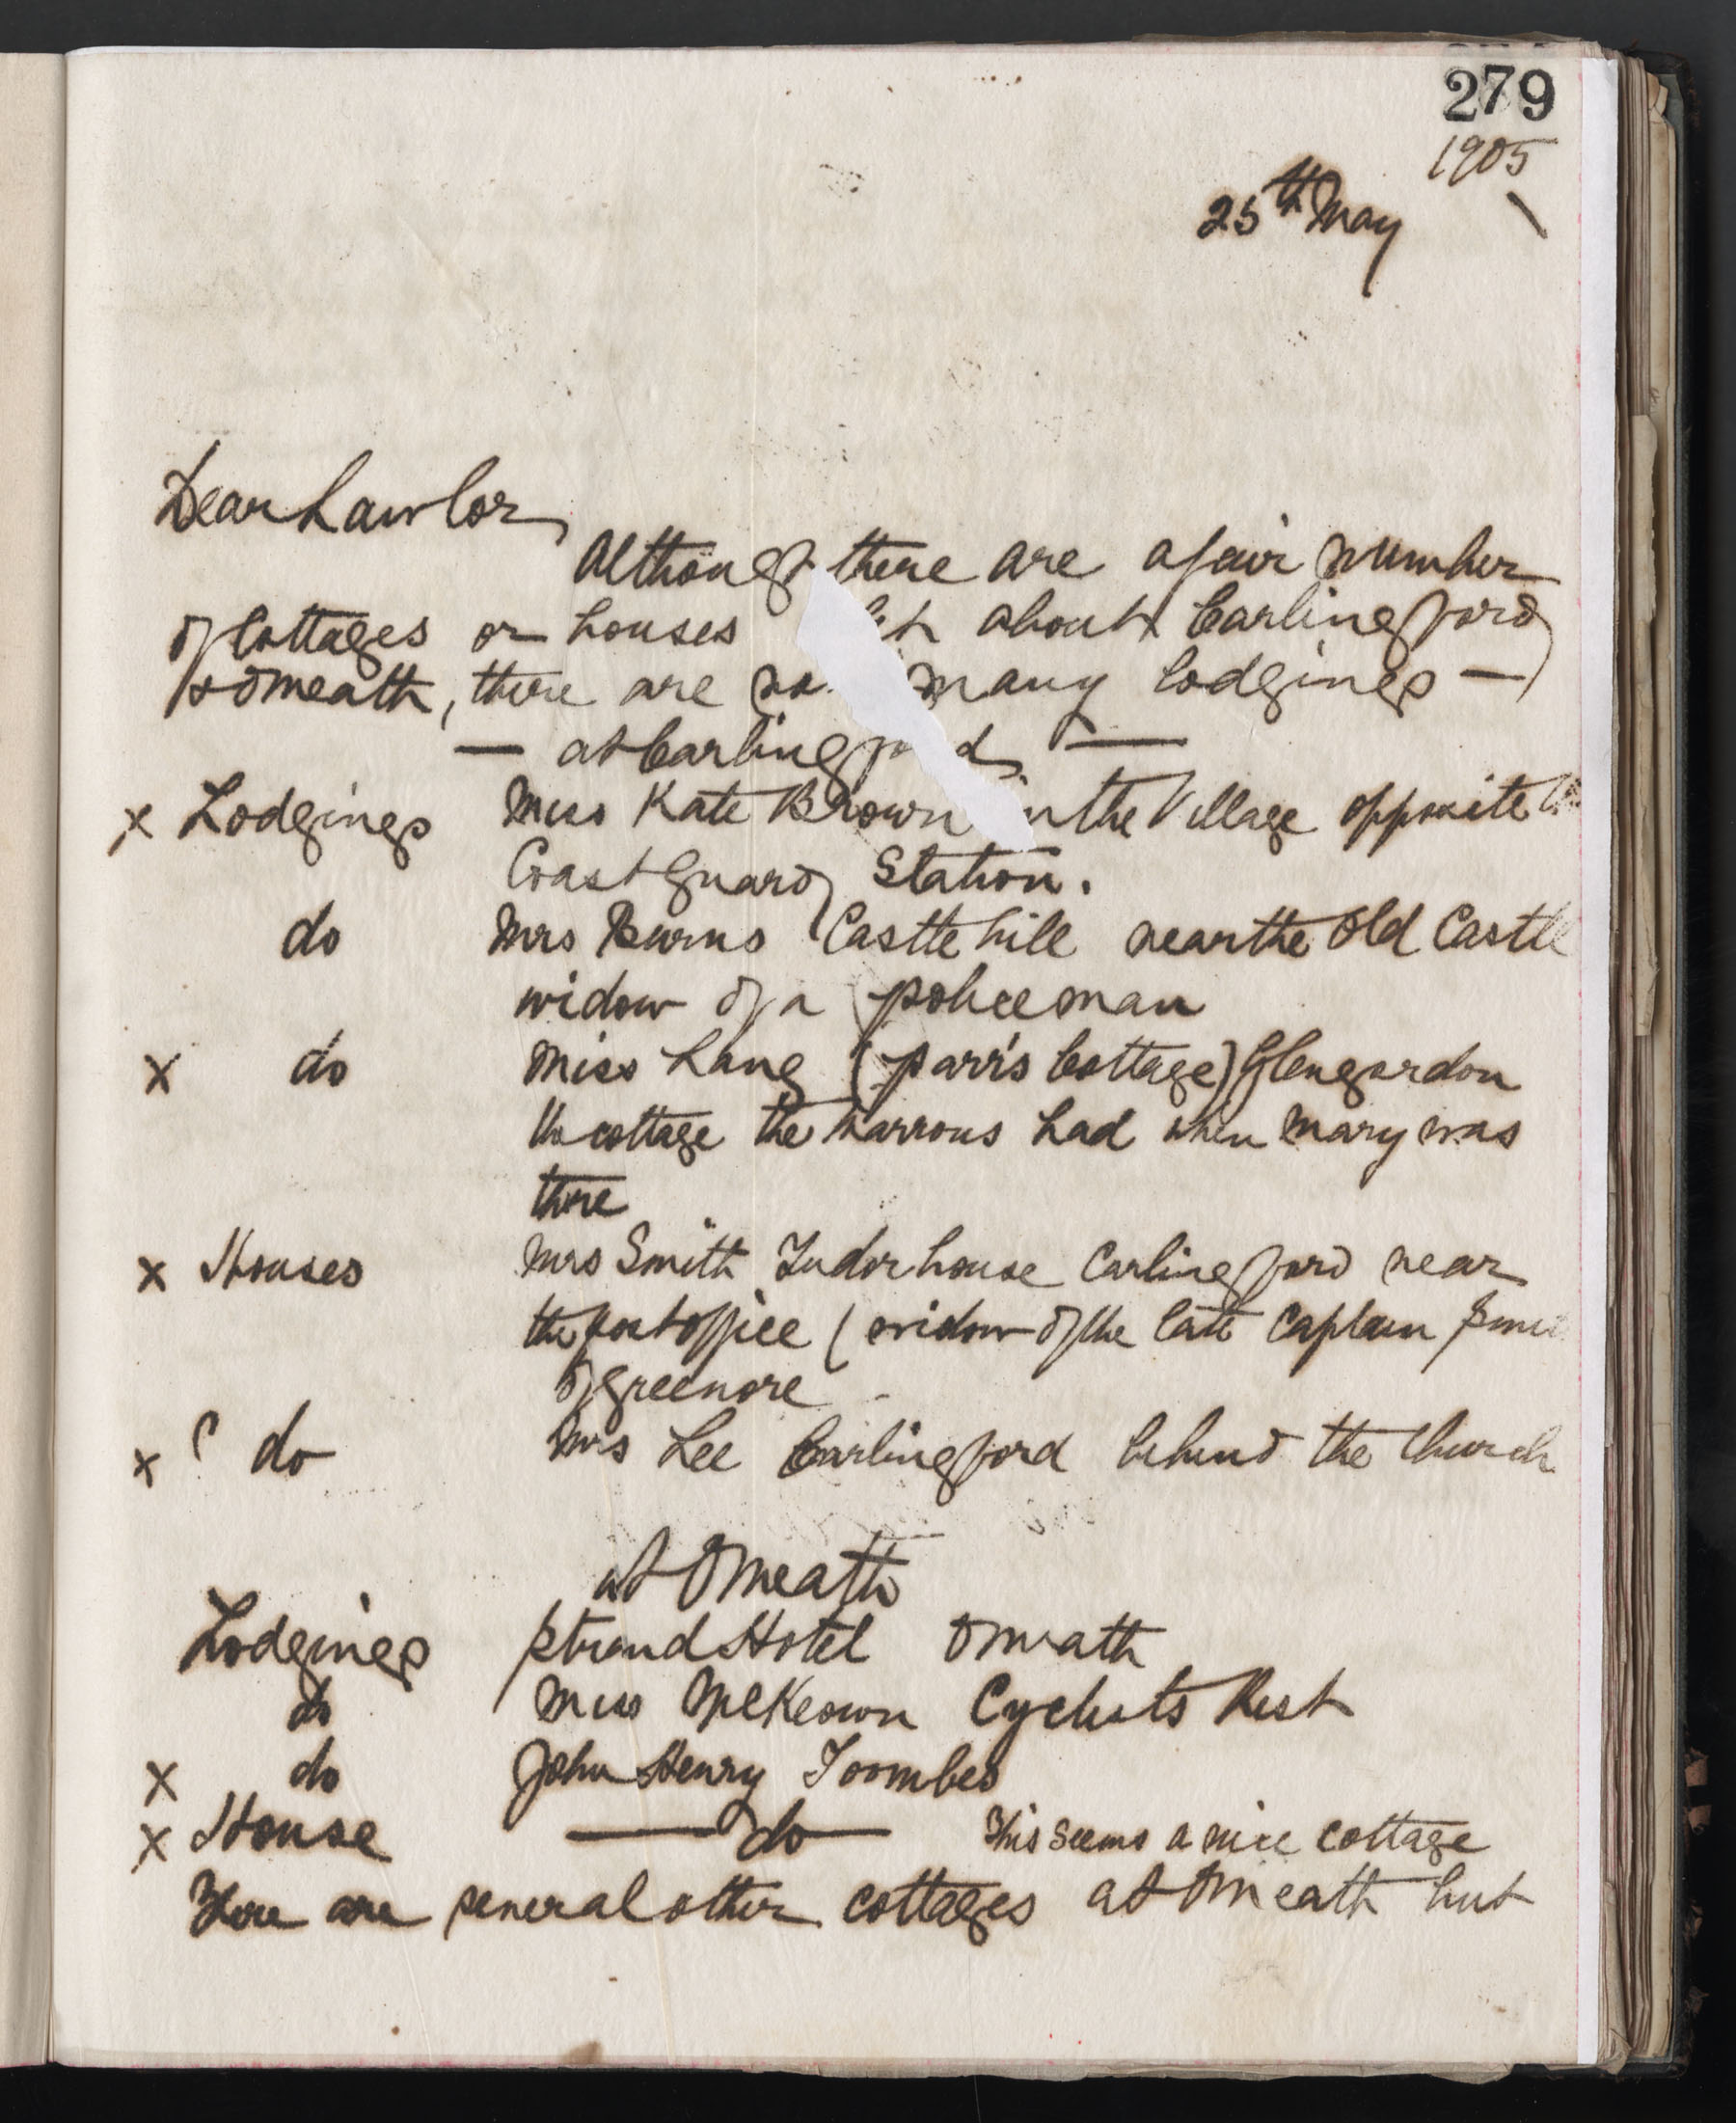 279
1905
25th May
Dear Lawlor
Although there are a fair number
of Cottages or houses about Carlingford
Omeath, there are many lodgings —
— at Carlingford —
x Lodgings Miss Kate Brown in the Village opposite
Coastguard Station.
do Mrs Burns Castle hill near the Old Castle
widow of a policeman
x do Miss Lang (Parr's Cottage) Glengardon
the cottage the had when Mary was
there
x Houses Mrs Smith Tudor house Carlingford near
the post office (widow of the late Captain
of Greenore
x ? do Mrs Lee Carlingford behind the Church
at Omeath
Lodgings Strand Hotel Omeath
do Miss McKeown Cyclists Rest
x do John Henry Toombes
x House — do — This seems a nice cottage
There are several other cottages at Omeath but